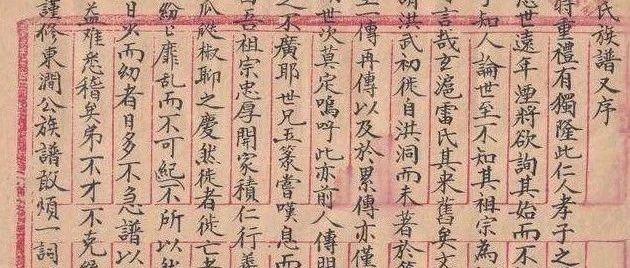 氏族譜又序
特重禮有獨隆此仁人孝子之
世遠年湮將欲詢其始而不
于知人論世至不知其祖宗為
言哉玄滬雷氏其來舊矣文
謂洪武初徙自洪洞而未著於
一傳再傳以及於累傳亦僅
世次莫定嗚呼此亦前人傳
之不廣耶世兄五篆嘗嘆息而
吾祖宗忠厚開家積仁行善
瓜瓞椒聊之慶然徙者徙亡者
紛紛靡亂而不可紀不所以
日少而幼者日多不急譜以
益難悉稽矣弟不才不克
謹修東澗公族譜敢煩一詞